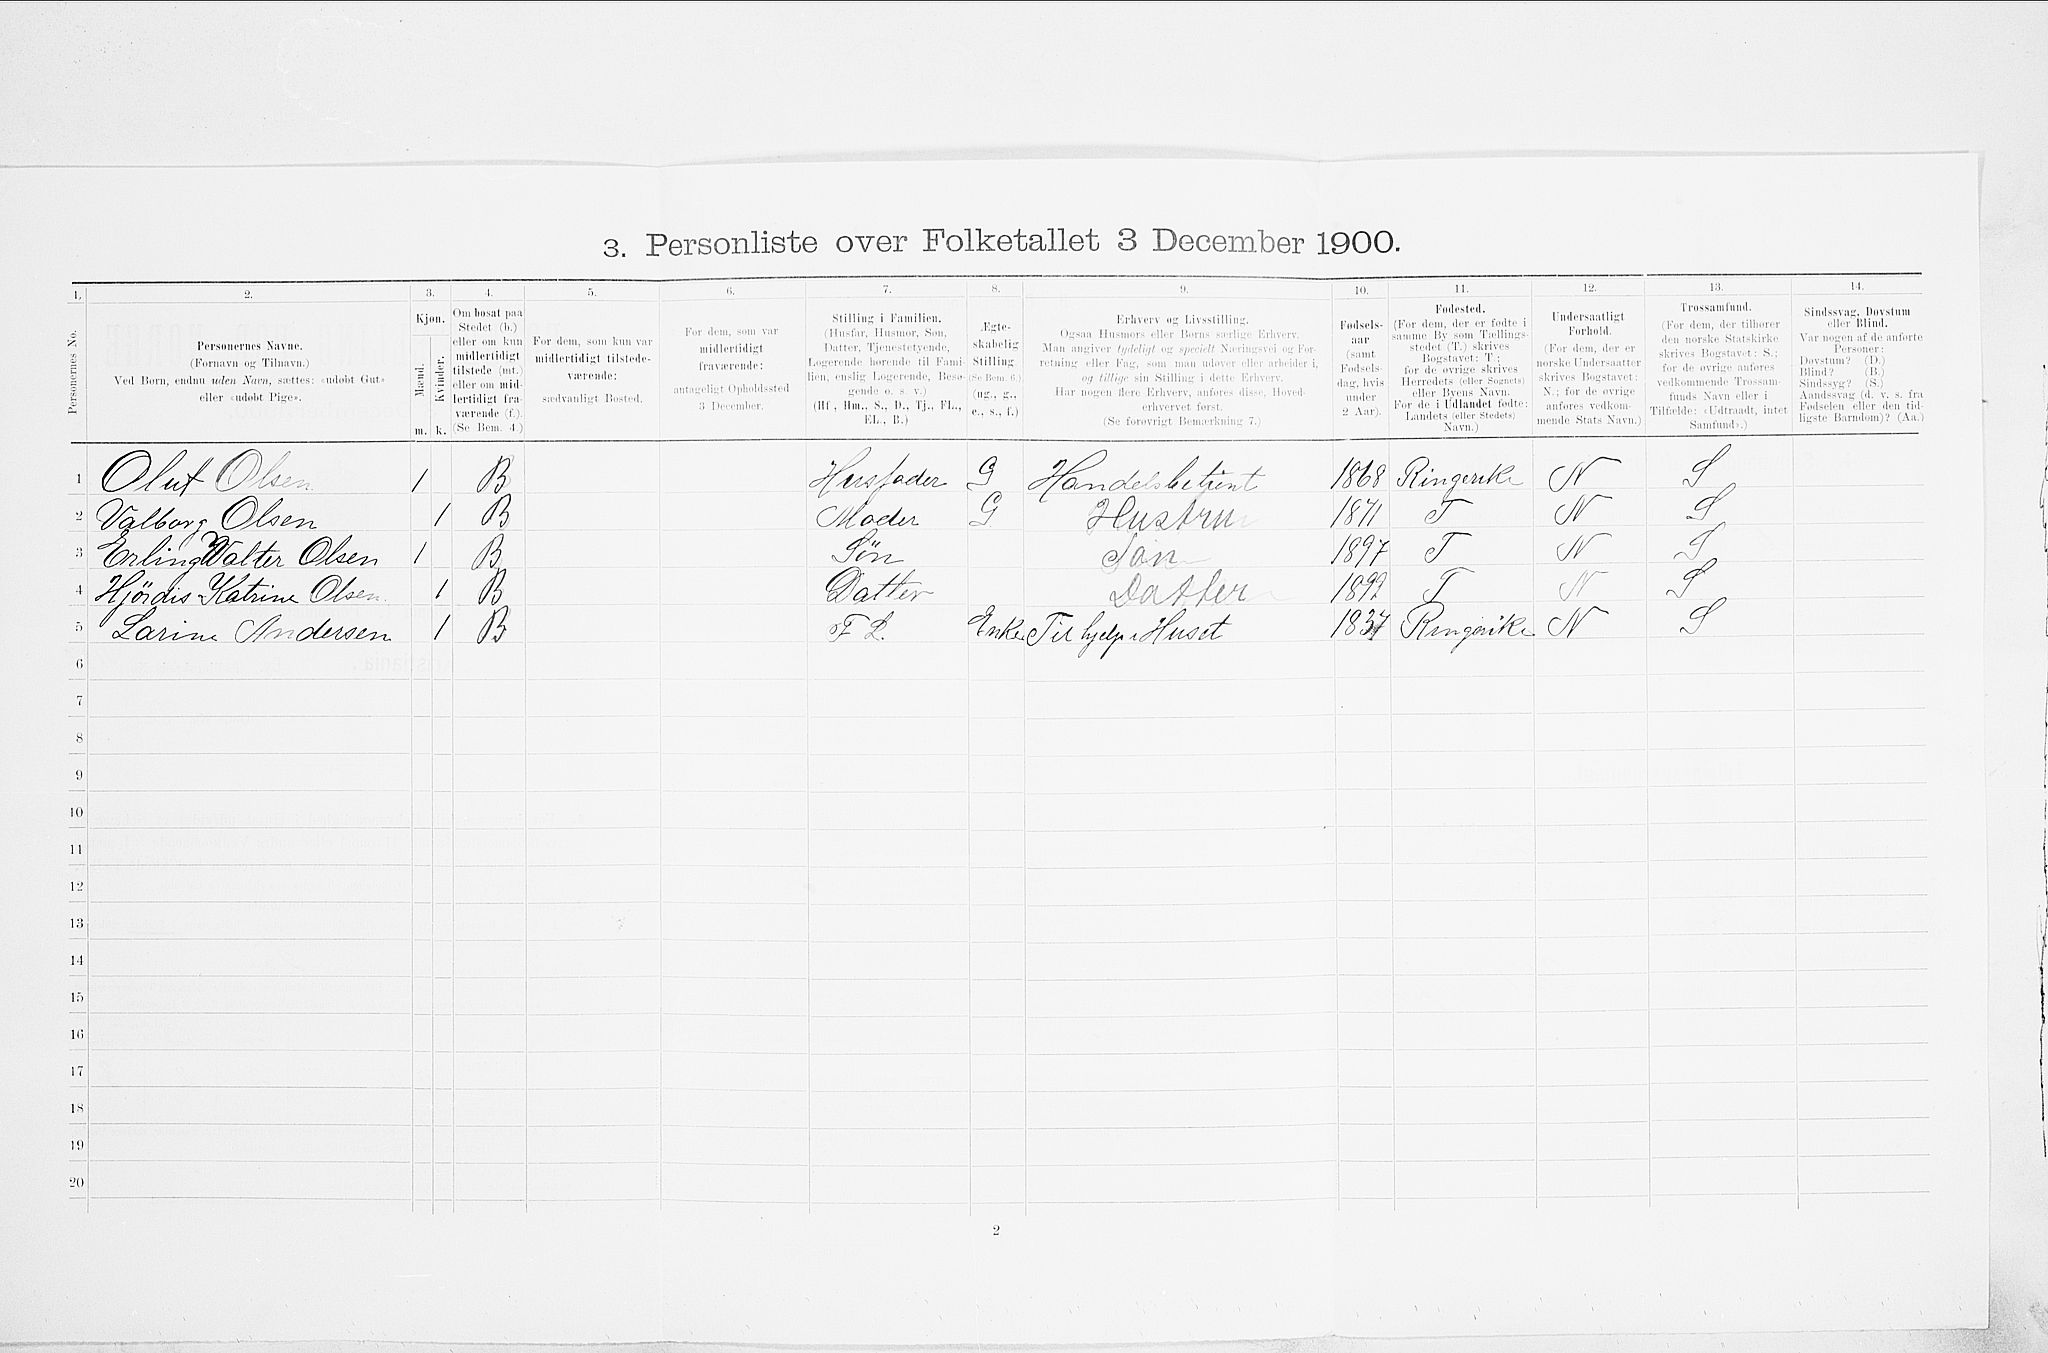 3. Personliste over Folketallet 3 December 1900.
1. 2. 3. 4. 5. 6. 7. 8. 9. 10. 11. 12. 13. 14.
Personernes No.
Personernes Navne.
(Fornavn og Tilnavn.)
Ved Børn, endnu uden Navn, sættes: «udøbt Gut»
eller «udøbt Pige».
Kjøn.
Mænd.
Kvinder.
m. k.
Om bosat paa
Stedet (b.)
eller om kun
midlertidigt
tilstede (mt.)
eller om mid-
lertidigt fra-
værende (f.).
(Se Bem. 4.)
For dem, som kun var
midlertidigt tilstede-
værende:
sædvanligt Bosted.
For dem, som var
midlertidigt
fraværende:
antageligt Opholdssted
3 December.
Stilling i Familien.
(Husfar, Husmor, Søn,
Datter, Tjenestetyende,
Logerende hørende til Fami-
lien, enslig Logerende, Besø-
gende o. s. v.)
(Hf., Hm., S., D., Tj., FL.,
EL., B.)
Ægte-
skabelig
Stilling.
(Se Bem. 6.)
(ug., g.,
e., s., f.)
Erhverv og Livsstilling.
Ogsaa Husmors eller Børns særlige Erhverv.
Man angiver tydeligt og specielt Næringsvei og For-
retning eller Fag, som man udøver eller arbeider i,
og tillige sin Stilling i dette Erhverv.
Har nogen flere Erhverv, anføres disse, Hoved-
erhvervet først.
(Se forøvrigt Bemærkning 7.)
Fødsels-
aar
(samt
Fødsels-
dag, hvis
under
2 Aar).
Fødested.
(For dem, der er fødte i
samme By som Tællings-
stedet (T.) skrives
Bogstavet: T.;
for de øvrige skrives
Herredets (eller Sognets)
eller Byens Navn.
For de i Udlandet fødte:
Landets (eller Stedets)
Navn.)
Undersaatligt
Forhold.
(For dem, der er
norske Undersaatter
skrives Bogstavet:
N.; for de øvrige
anføres vedkom-
mende Stats Navn.)
Trossamfund.
(For dem, der tilhører
den norske Statskirke
skrives Bogstavet: S.;
for de øvrige anføres
vedkommende Trossam-
funds Navn eller i
Tilfælde: «Udtraadt, intet
Samfund».)
Sindssvag, Døvstum
eller Blind.
Var nogen af de anførte
Personer:
Døvstum? (D.)
Blind? (B.)
Sindssyg? (S.)
Aandssvag (d. v. s. fra
Fødselen eller den tid-
ligste Barndom)? (Aa.)
1 Oluf Olsen 1 B Husfader G Handelsbetjent 1868 Ringerike N S
2 Valborg Olsen 1 B Moder G Hustru 1871 T N S
3 Erling Walter Olsen 1 B Søn Søn 1897 T N S
4 Hjördis Katrine Olsen 1 B Datter Datter 1899 T N S
5 Larine Andersen 1 B F L. Enke Til hjelp i Huset 1837 Ringerike N S
6
7
8
9
10
11
12
13
14
15
16
17
18
19
20
2